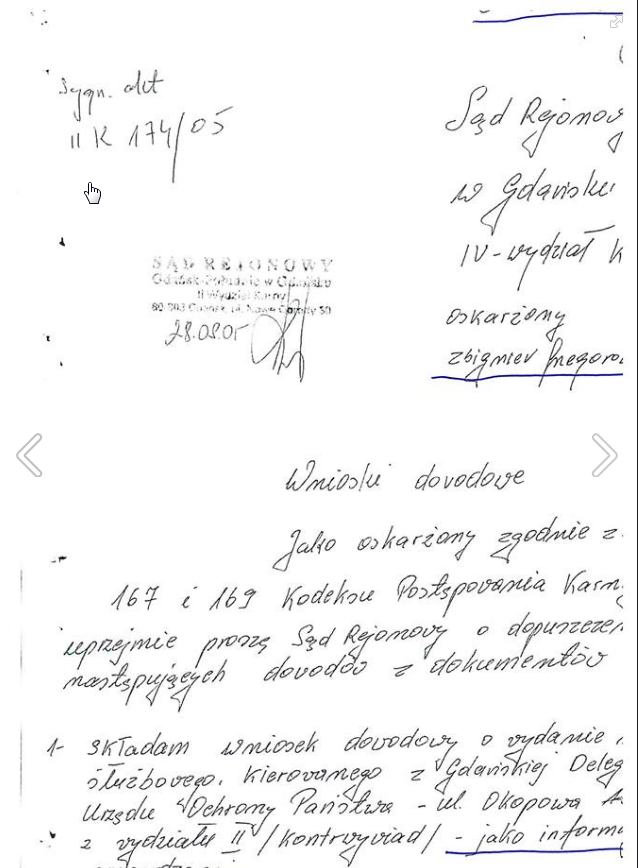 Sygn. akt
II K 174/05
Sąd Rejonow
w Gdańsku
IV-wydział K
SĄD REJONOWY
Gdańsk-Południe w Gdańsku
II Wydział Karny
28.09.05
oskarżony
Zbigniew
Wnioski dowodowe
Jako oskarżony zgodnie z
167 i 169 Kodeksu Postępowania Karn
uprzejmie proszę Sąd Rejonowy o dopuszczen
następujących dowodów z dokumentów
1- składam wniosek dowodowy o wydanie
służbowego, kierowanego z Gdańskiej Deleg
Urzędu Ochrony Państwa - ul. Okopowa
z wydziału II /kontrwywiad/ - jako inform